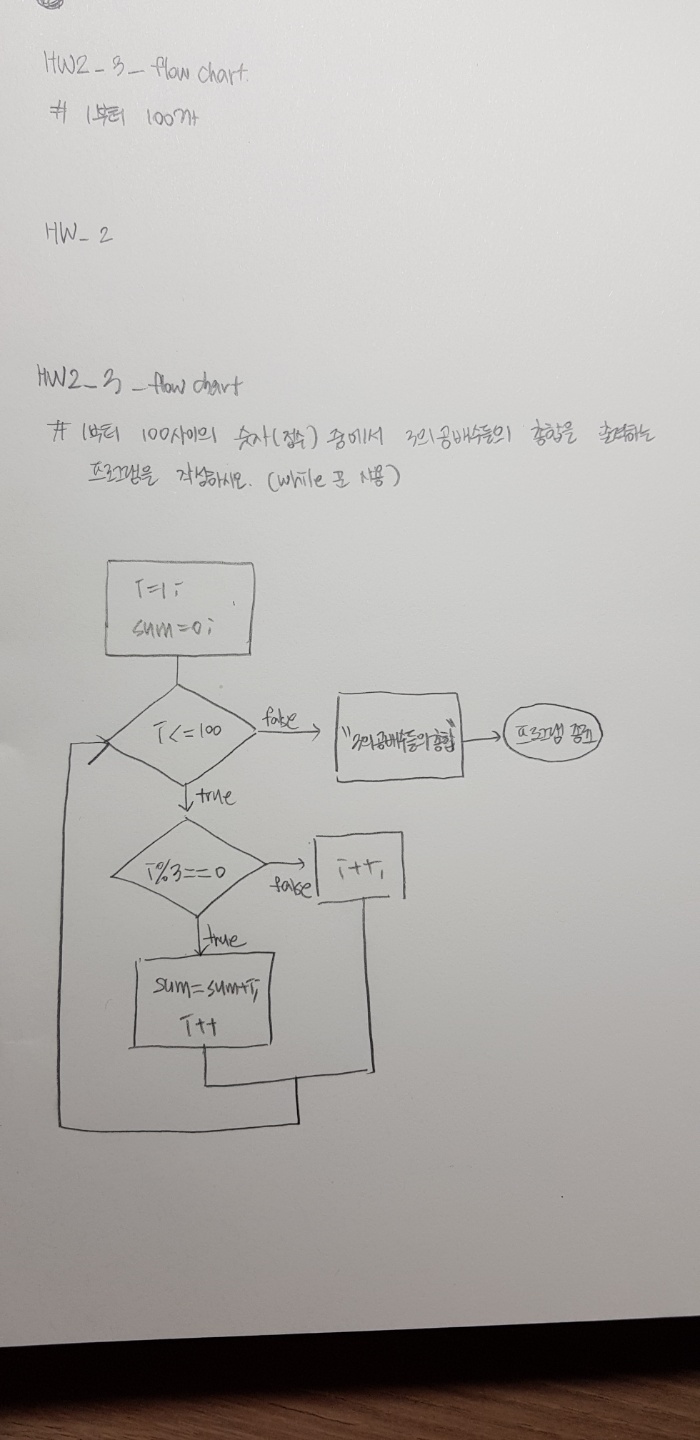 HW2-3-flow chart.
# 1부터 100까
HW-2
HW2-3-flow chart
# 1부터 100사이의 숫자(점수) 중에서 3의공배수들의 총합을 출력하는
프로그램을 작성하시오. (while 문 사용)
i=1;
sum=0;
i<=100
false
"3의공배수들의총합"
프로그램 종료
true
i%3==0
false
i++;
true
sum=sum+i;
i++